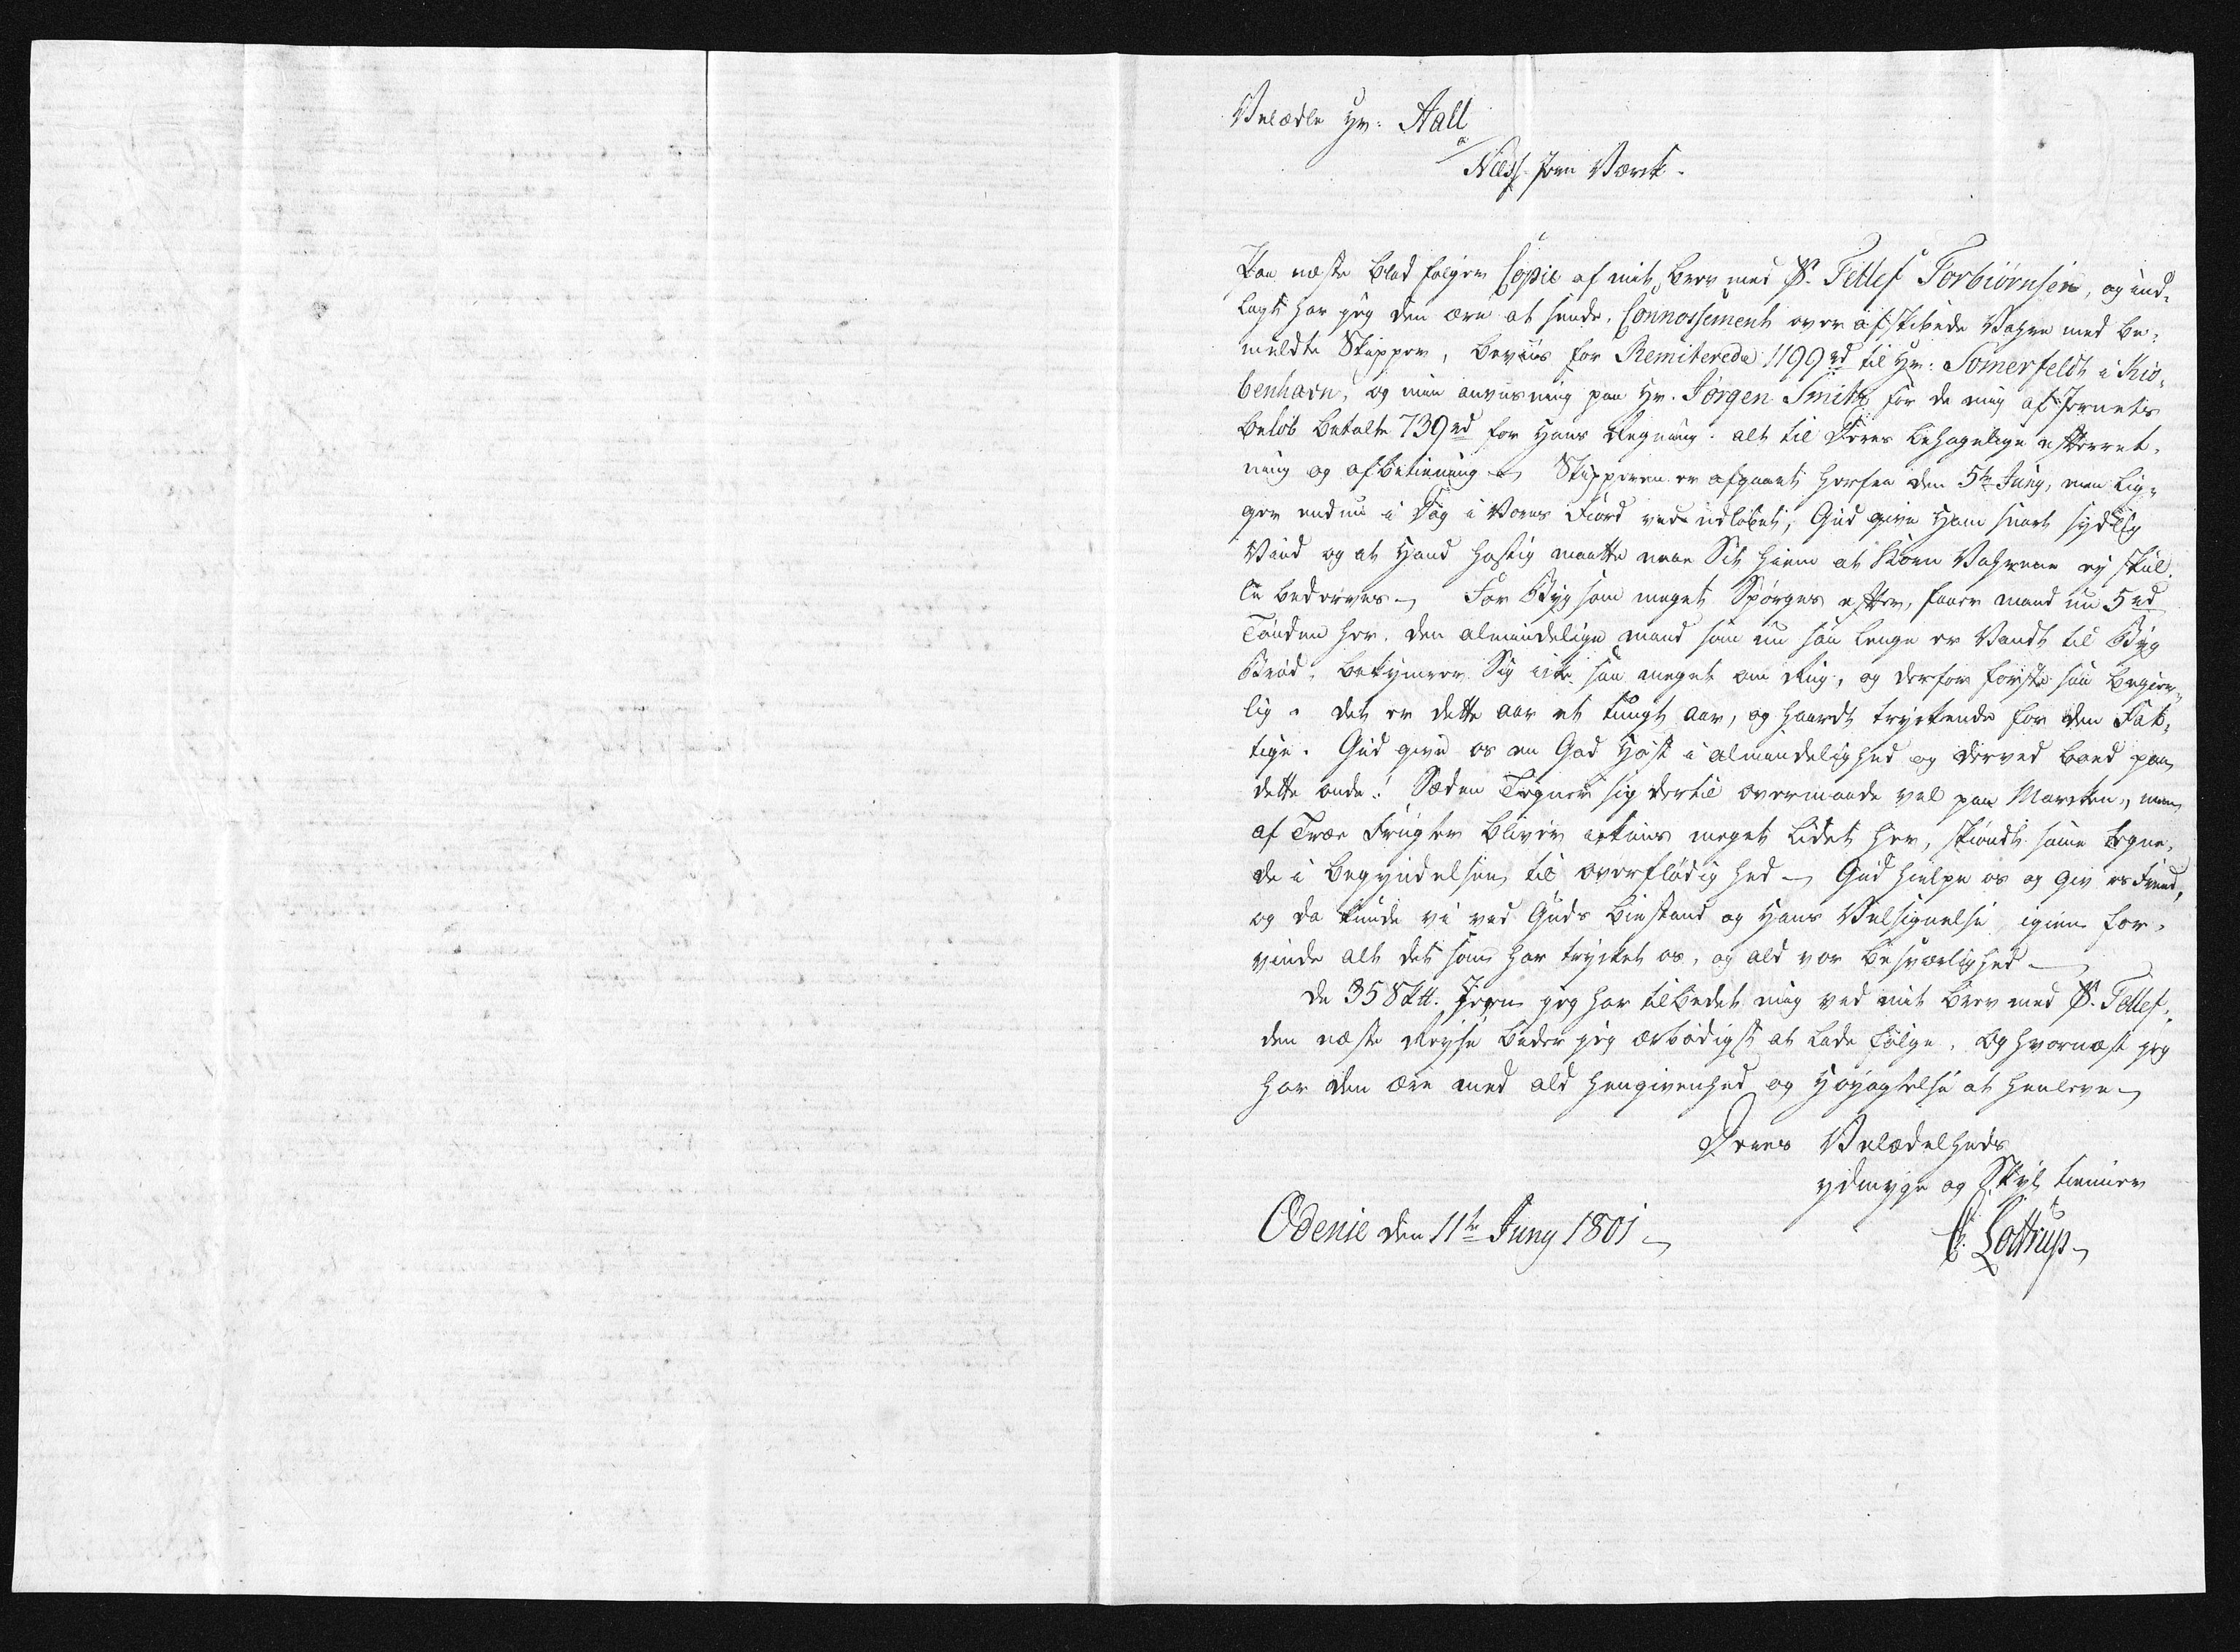 Velædle Hr: Aall
a/
Næss Jern Værck.
Paa næste blad følger Copie af mit brev med S. Tellef Torbiørnsen, og ind-
lagt har jeg den ære at sende, Connossement over afskibede Vahre med be-
meldte Skipper, beviis for Remiterede 1199 rd til Hr: Somerfeldt i Kiø-
benhavn, og min anviisning paa Hr. Jørgen Smith for de mig af Jernets
beløb betalte 739 rd for Hans Regning. alt til Deres behagelige efterret-
ning og afbetiening Skipperen er afgaaet herfra den 5te Juny, men lig-
ger endnu i Dag i Vores Fiord ved udløbet, Gud give Ham snart sydlig
Vind og at Hand hastig maatte naae Sit hiem at Korn Vahrene ej skul-
le bederves. For Byg som meget Spørges efter, faaer mand nu 5 rd
Tønden her. den almindelige mand som nu saa lenge er Vandt til Byg
Brød, bekymrer Sig icke saa meget om Rug, og derfor første saa begier-
lig. det er dette aar et tungt aar, og haardt tryckende for den Fat-
tige. Gud give os en God Høst i almindelighed og derved boed paa
dette onde! Sæden Tegner sig dertil overmaade vel paa Marcken, men
af Træe Frugter bliver ickuns meget lidet her, skiøndt same tegne-
de i begyndelsen til overflødighed Gud hielpe os og giv os Fred,
og da kunde vi ved Guds biestand og Hans Velsignelse igien for-
vinde alt det som har trycket os, og ald vor besværlighed
De 358 Jern jeg har tilbedet mig ved mit brev med S. Tellef,
den næste Reyse beder jeg ærbødigst at lade følge. Og hvornæst jeg
har den ære med ald hengivenhed og Høyagtelse at henleve
Deres Velædelheds
ydmyge og Skyl. tiener
Odense den 11te Juny 1801
C. Lottrup